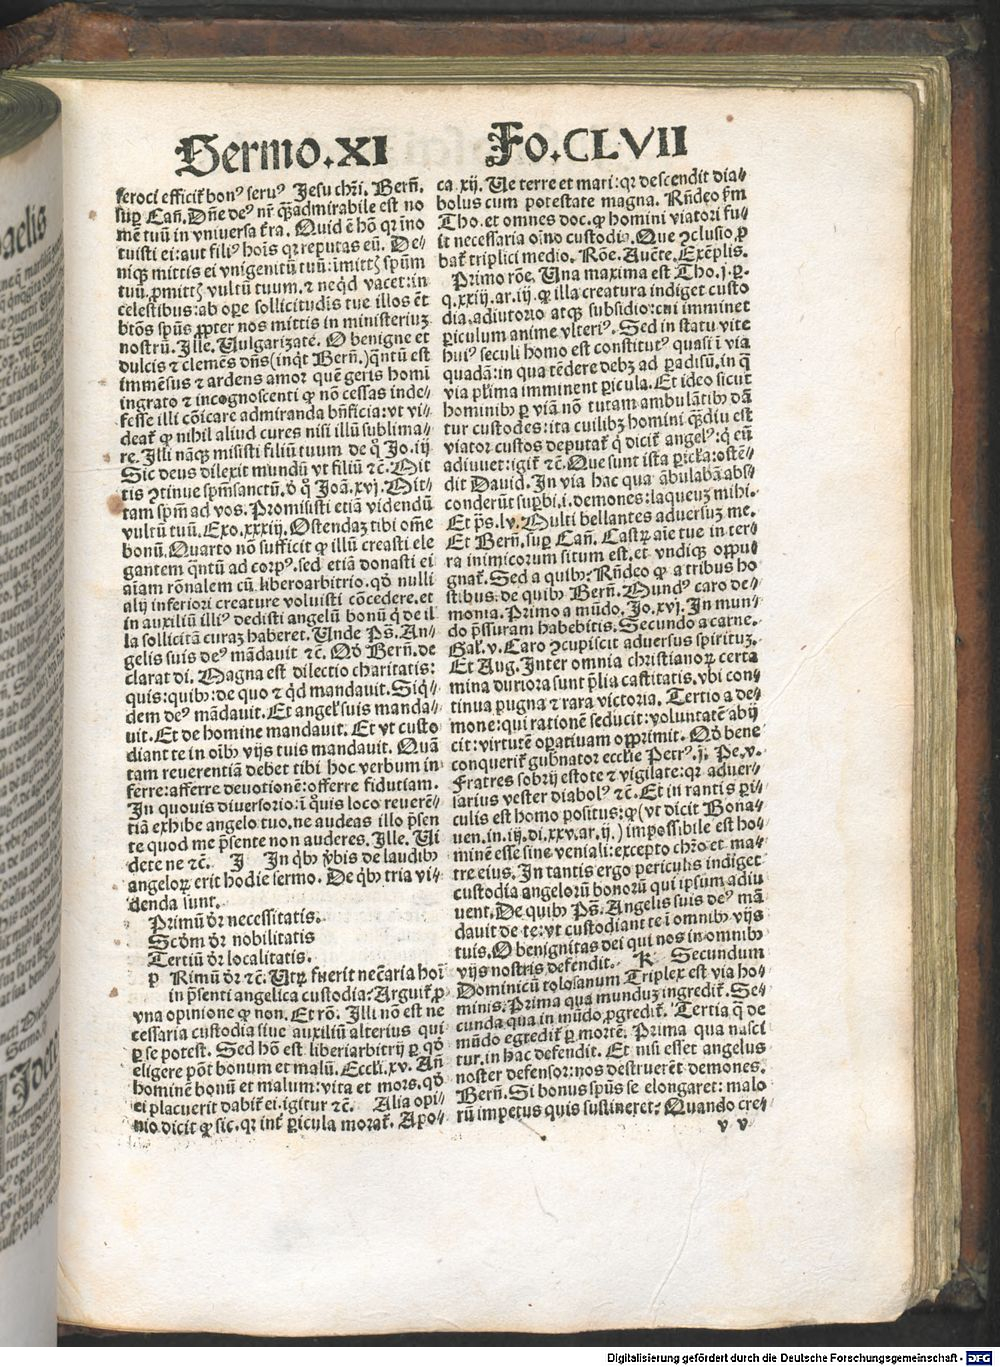 Sermo.XI
Fo.CLVII
feroci efficit᷑ bonꝰ seruꝰ Jesu chr̄i. Bern̄.
suꝑ Can̄. Dn̄e deꝰ nr̄ qƺ̄admirabile est no
mē tuū in vniuersa t̄ra. Quid ē hō qꝛ īno
tuisti ei: aut filiꝰ hoīs qꝛ reputas eū. De⸗
niqꝫ mittis ei vnigenitū tuū: īmittꝭ spūm
tuū, ꝓmittꝭ vultū tuum. ⁊ neqd̄ vacet: in
celestibus: ab oꝑe sollicitudīs tue illos ēt
btōs spūs ꝓpter nos mittis in ministeriuꝫ
nostrū. Ille. Uulgarizate. O benigne et
dulcis ⁊ clemēs dn̄s (inq̄t Bern̄.) q̄ntū est
immēsus ⁊ ardens amor quē geris homī
ingrato ⁊ incognoscenti ꝙ nō cessas inde⸗
fesse illi cōicare admiranda bn̄ficia: vt vi⸗
deat᷑ ꝙ nihil aliud cures nisi illū sublima⸗
re. Illi nāqꝫ misisti filiū tuum de q̊ Jo. iij
Sic deus dilexit mundū vt filiū ⁊c̄. Mit
tis ꝯtinue spm̄sanctū, ð q̊ Joā. xvj. Mit⸗
tam spm̄ ad vos. Promisisti etiā videndū
vultū tuū, Exo. xxxiij. Ostendaꝫ tibi om̄e
bonū. Quarto nō sufficit ꝙ illū creasti ele
gantem q̄ntū ad corpꝰ. sed etiā donasti ei
aīam rōnalem cū liberoarbitrio. qð nulli
alij inferiori creature voluisti cōcedere. et
in auxiliū illiꝰ dedisti angelū bonū q̇ de il
la sollicitā curaꝫ haberet. Unde Ps̄. An⸗
gelis suis deꝰ mādauit ⁊c̄. Qð Bern̄. de
clarat di. Magna est dilectio charitatis:
quis: quibꝰ: de quo ⁊ qd̄ mandauit. Siq̇⸗
dem deꝰ mādauit. Et angel᷑ suis manda⸗
uit. Et de homine mandauit. Et vt custo
diant te in oībꝰ vijs tuis mandauit. Quā
tam reuerentiā debet tibi hoc verbum in⸗
ferre: afferre deuotionē: offerre fidutiam.
In quouis diuersorio: ī q̇uis loco reuerē⸗
tiā exhibe angelo tuo. ne audeas illo p̄sen
te quod me p̄sente non auderes. Ille. Ui
dete ne ⁊c̄. I In q̇bꝰ v̄bis de laudibꝰ
angeloꝝ erit hodie sermo. De q̇bꝰ tria vi⸗
denda sunt.
Primū ðr necessitatis.
Scðm ðr nobilitatis
Tertiū ðr localitatis.
p Rimū ðr ⁊c̄. Utꝝ fuerit nec̄aria hoī
in p̄senti angelica custodia: Arguit᷑ ꝓ
vna opinione ꝙ non. Et rō. Illi nō est ne
cessaria custodia siue auxiliū alterius qui
ꝑ se potest. Sed hō est liberiarbitrij ꝑ qð
eligere pōt bonum et malū. Eccli. xv. An̄
hominē bonū et malum: vita et mors. qð
ei placuerit dabit᷑ ei. igitur ⁊c̄. Alia opi⸗
nio dicit ꝙ sic. qꝛ int᷑ ꝑicula morat᷑. Apo⸗
ca xij. Ue terre et mari: qꝛ descendit dia⸗
bolus cum potestate magna. Rn̄deo ẜm
Tho. et omnes doc. ꝙ homini viatori fu⸗
it necessaria oīno custodia. Que ꝯclusio, ꝓ
bat᷑ triplici medio. Rōe. Aucte. Exēplis.
Primo rōe. Una maxima est Tho. j. p.
q. xxiij. ar. iij. ꝙ illa creatura indiget custo
dia, adiutorio atqꝫ subsidio: cui imminet
ꝑiculum anime vlteriꝰ. Sed in statu vite
huiꝰ seculi homo est constitutꝰ quasi ī via
quadā: in qua tēdere debꝫ ad ꝑadisū. in q̄
via pl᷑ima imminent ꝑicula. Et ideo sicut
hominibꝰ ꝑ viā nō tutam ambulātibꝰ dā
tur custodes: ita cuilibꝫ homini qƺ̄diu est
viator custos deputat᷑ q̇ dicit᷑ angelꝰ: q̇ eū
adiuuet: igit᷑ ⁊c̄. Que sunt ista ꝑicl᷑a: ostē⸗
dit Dauid. In via hac qua ābulabā abs⸗
conderūt suꝑbi. i. demones: laqueuꝫ mihi.
Et ps̄. lv. Multi bellantes aduersuꝫ me.
Et Bern̄. suꝑ Can̄. Castrꝫ aīe tue in ter⸗
ra inimicorum situm est. et vndiqꝫ oppu⸗
gnat᷑. Sed a quibꝰ: Rn̄deo ꝙ a tribus ho
stibus: de quibꝰ Bern̄. Mundꝰ caro de⸗
monia. Primo a mūdo, Jo. xvj. In mun⸗
do p̄ssuram habebitis. Secundo a carne.
Gal᷑. v. Caro ꝯcupiscit aduersus spirituꝫ.
Et Aug. Inter omnia christianoꝝ certa
mina duriora sunt p̄lia castitatis. vbi con⸗
tinua pugna ⁊ rara victoria. Tertio a de⸗
mone: qui rationē seducit: voluntatē abij
cit: virtutē oꝑatiuam opprimit. Qð bene
conquerit᷑ gub̄nator eccl̄ie Petrꝰ. j. Pe. v.
Fratres sobrij estote ⁊ vigilate: qꝛ aduer⸗
sarius vester diabolꝰ ⁊c̄. Et in tantis ꝑi⸗
culis est homo positus: ꝙ (vt dicit Bona⸗
uen. in. iij. di. xxv. ar. ij.) impossibile est ho⸗
minē esse sine veniali: excepto chr̄o et ma⸗
tre eius. In tantis ergo periculis indiget
custodia angelorū bonorū qui ipsum adiu
uent. De quibꝰ Ps̄. Angelis suis deꝰ mā
dauit de te: vt custodiant te ī omnibꝰ vijs
tuis. O benignitas dei qui nos in omnibꝰ
vijs nostris defendit. K Secundum
Dominicū tolosanum Triplex est via ho⸗
minis. Prima qua munduꝫ ingredit᷑. Se⸗
cunda qua in mūdo, ꝓgredit᷑. Tertia q̄ de
mūdo egredit᷑ ꝑ mortē. Prima qua nasci
tur. in hac defendit. Et nisi esset angelus
noster defensor: nos destruerēt demones.
Bern̄. Si bonus spūs se elongaret: malo
rū impetus quis sustineret: Quando cre⸗
v v
Digitalisierung gefördert durch die Deutsche Forschungsgemeinschaft - DFG